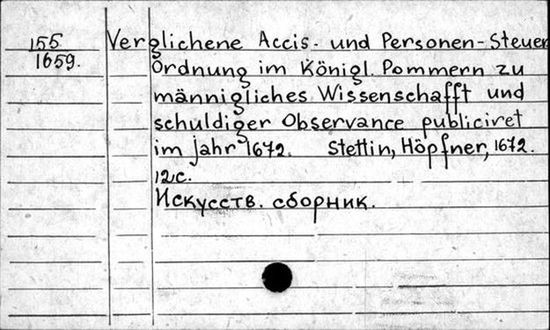 155
1659.
Verglichene Accis- und Personen-Steuer
Ordnung im Königl. Pommern zu
männigliches Wissenschafft und
schuldiger Observance publiciret
im Jahr 1672. Stettin, Höpfner, 1672.
12c.
Искусств. сборник.